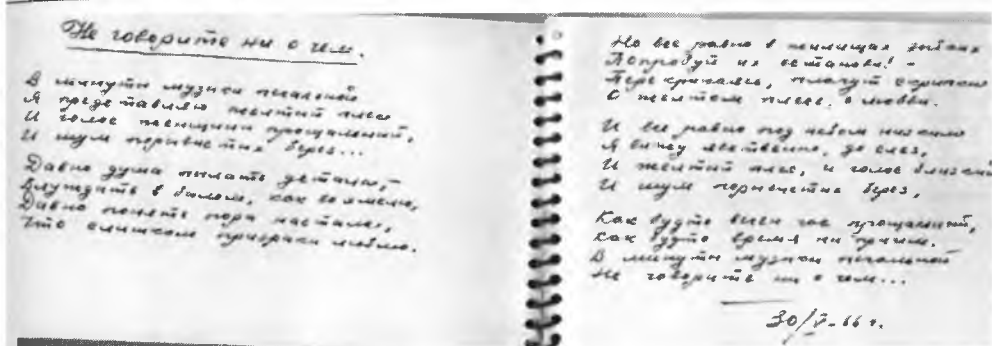 Не говорите ни о чем.
В минуты музыки печальной
Я представляю желтый плес
И голос женщины прощальный,
И шум порывистых берез...
Давно душа пылать устала,
Блуждать в былом, как во хмелю,
Давно понять пора настала,
Что слишком призраки люблю.
Но все равно в жилищах зыбких
Попробуй их останови! -
Перекликаясь, плачут скрипки
О желтом плесе, о любви.
И все равно под небом низким
Я вижу явственно, до слез,
И желтый плес, и голос близкий
И шум порывистых берез,
Как будто вечен час прощальный,
Как будто время ни при чем.
В минуты музыки печальной
Не говорите ни о чем...
30/V-66 г.